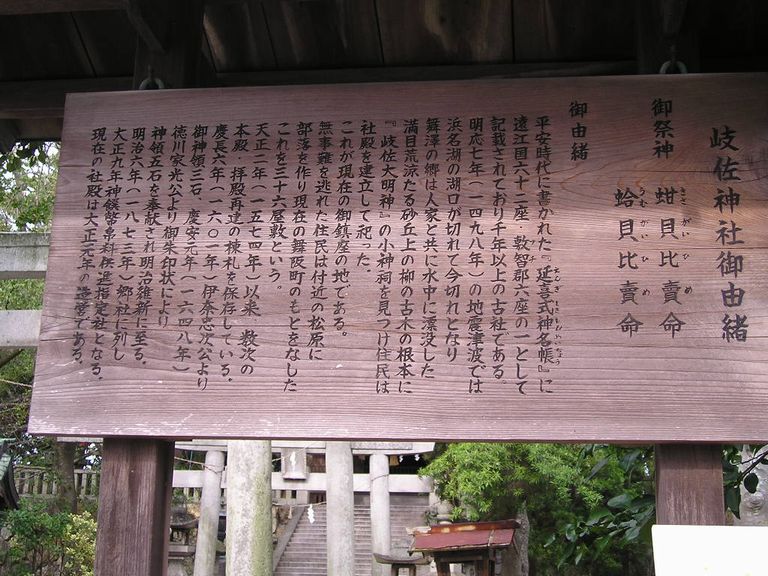 岐佐神社御由緒
御祭神 蚶貝比賣命
きさがいひめ
蛤貝比賣命
うむがいひめ
御由緒
平安時代に書かれた『延喜式神名帳』に
遠江国六十二座・敷智郡六座の一として
記載されており千年以上の古社である。
明応七年(一四九八年)の地震津波では
浜名湖の湖口が切れて今切れとなり
舞澤の郷は人家と共に水中に漂没した
満目荒涼たる砂丘上の柳の古木の根本に
『岐佐大明神』の小神祠を見つけ住民は
社殿を建立して祀った。
これが現在の御鎮座の地である。
無事難を逃れた住民は付近の松原に
部落を作り現在の舞阪町のもとをなした
これを三十六屋敷という。
天正二年(一五七四年)以来 数次の
本殿・拝殿再建の棟札を保存している。
慶長六年(一六〇一年)伊奈忠次公より
御神領三石、慶安元年(一六四八年)
徳川家光公より御朱印状により
神領五石を奉献され明治維新に至る。
明治六年(一八七三年)郷社に列し
大正九年神饌幣帛料供進指定社となる。
現在の社殿は大正元年の造営である。